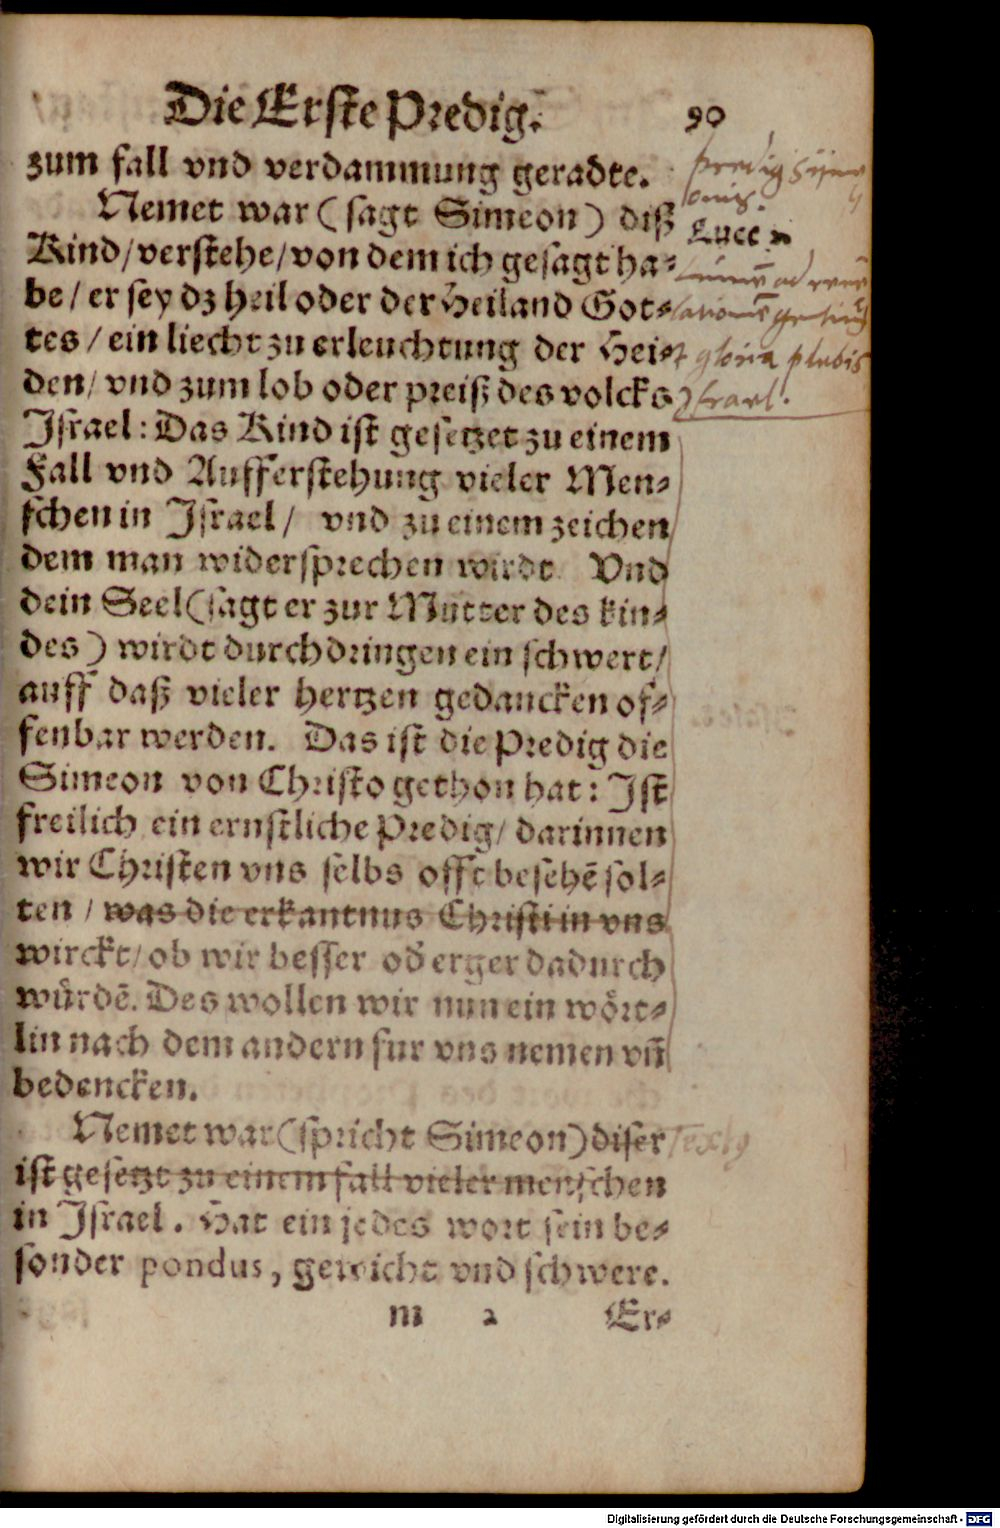 Die Erste Predig. 90
zum fall vnd verdammung geradte.
Nemet war (sagt Simeon) diß
Kind/verstehe/von dem ich gesagt ha-
be/er sey dz heil oder der Heiland Got-
tes/ein liecht zu erleuchtung der Hei-
den/vnd zum lob oder preiß des volcks
Israel: Das Kind ist gesetzet zu einem
Fall vnd Aufferstehung vieler Men-
schen in Israel/ vnd zu einem zeichen
dem man widersprechen wirdt Vnd
dein Seel (sagt er zur Mutter des kin-
des) wirdt durchdringen ein schwert/
auff daß vieler hertzen gedancken of-
fenbar werden. Das ist die Predig die
Simeon von Christo gethon hat: Ist
freilich ein ernstliche Predig/darinnen
wir Christen vns selbs offt besehē sol-
ten/was die erkantnus Christi in vns
wirckt/ob wir besser od̕ erger dadurch
wuͤrdē. Des wollen wir nun ein woͤrt-
lin nach dem andern fur vns nemen vn̄
bedencken.
Nemet war (spricht Simeon) diser
ist gesetzt zu einem fall vieler menschen
in Israel. Hat ein jedes wort sein be-
sonder pondus, gewicht vnd schwere.
m 2 Er-
predig
Luce 2
gloria plebis
Israel.
Digitalisierung gefördert durch die Deutsche Forschungsgemeinschaft - DFG